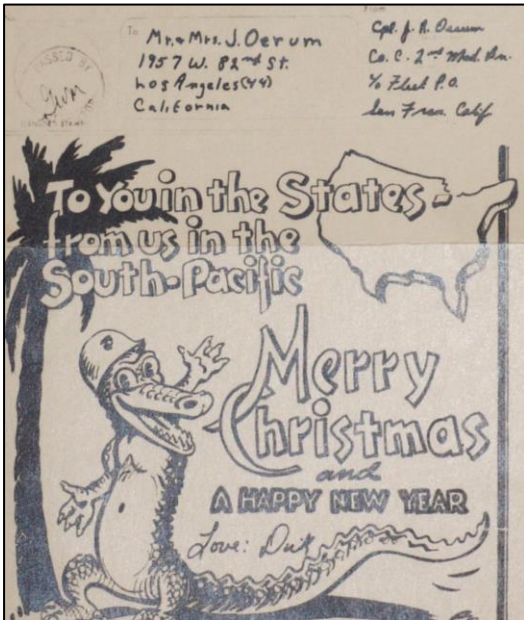 To
Mr. & Mrs. J. Oerum
1957 W. 82nd St.
Los Angeles (44)
California
From
Cpl. J. R. Oerum
Co. C. 2nd Med. Bn.
℅ Fleet P.O.
San Fran. Calif
PASSED BY
To You in the States
from us in the
South-Pacific
Merry
Christmas
and
A HAPPY NEW YEAR
Love: